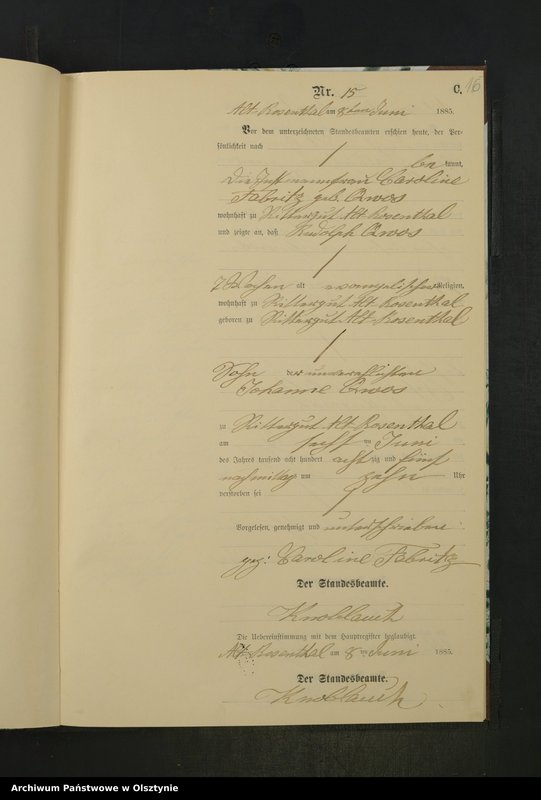 Nr. 15
C. 16
Alt Rosenthal am 8ten Juni 1885.
Vor dem unterzeichneten Standesbeamten erschien heute, der Per-
sönlichkeit nach
be kannt,
die Instmannsfrau Caroline
Fabritz geb. Qwos
wohnhaft zu Rittergut Alt Rosenthal
und zeigte an, daß Rudolph Qwos
7 Wochen alt evangelischer Religion,
wohnhaft zu Rittergut Alt Rosenthal
geboren zu Rittergut Alt Rosenthal
Sohn der unverehlichten
Johanne Qwos
zu Rittergut Alt Rosenthal
am ten Juni
des Jahres tausend acht hundert acht zig und fünf
nachmittags um zehn Uhr
verstorben sei
Vorgelesen, genehmigt und unterschrieben
gez: Caroline Fabritz
Der Standesbeamte.
Knoblauch
Die Uebereinstimmung mit dem Hauptregister beglaubigt
Alt Rosenthal am 8 ten Juni 1885.
Der Standesbeamte.
Knoblauch
Archiwum Państwowe w Olsztynie